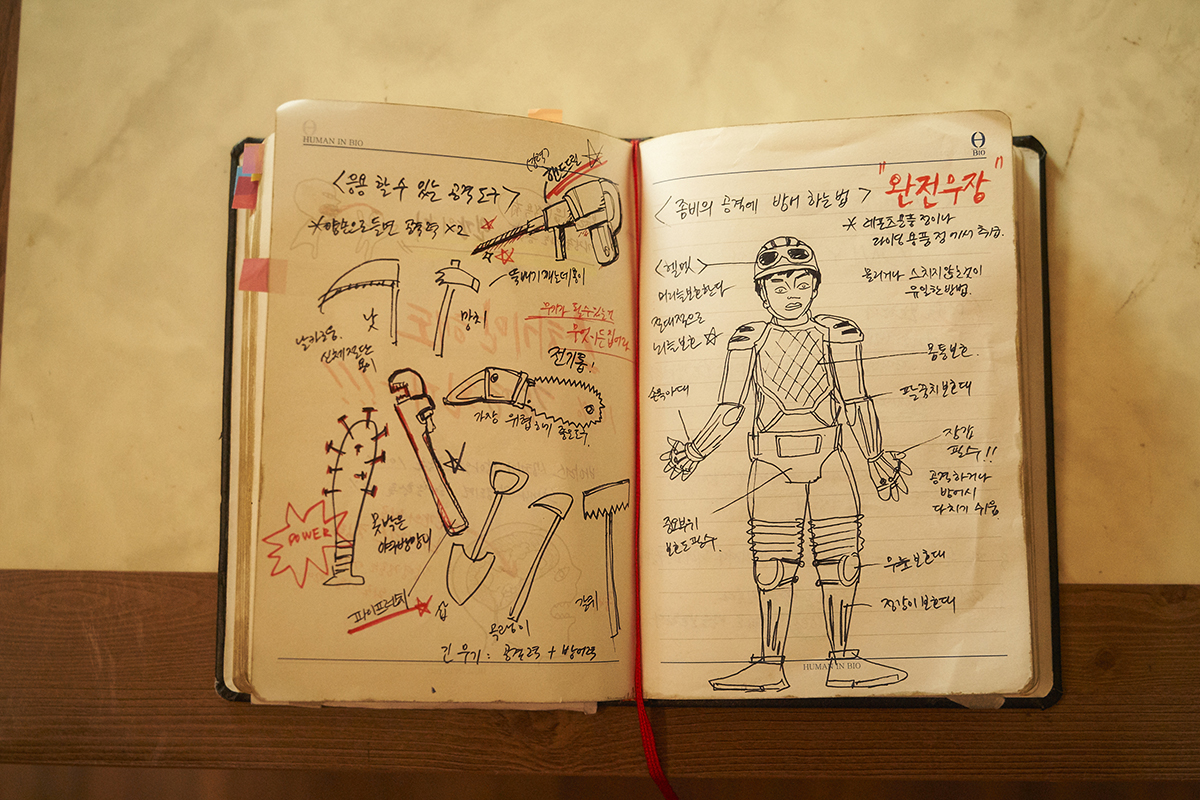 HUMAN IN BIO
<응용 할 수 있는 공격 도구>
※양손으로 들면 공격력 ×2
(강력)
핸드드릴
뚝배기 깨는데 용이
낫
날카로움.
신체절단
용이
망치
무기가 될 수 있는건
무엇이든 집어라
전기톱!
가장 위협하기 좋은 도구.
POWER
못 박은
야구방망이
파이프렌치
삽
곡괭이
갈퀴
긴 무기 : 공격력 + 방어력
BIO
<좀비의 공격에 방어 하는 법>
"완전무장"
※ 레포츠용품점이나
라이딩 용품점에서 취급.
물리거나 스치지 않는것이
유일한 방법.
<헬멧>
머리를 보호한다
절대적으로
뇌를 보호 ☆
손목아대
몸통보호.
팔꿈치 보호대
장갑
필수!!
공격하거나
방어시
다치기 쉬움.
중요부위
보호도 필수.
무릎보호대
정강이 보호대
HUMAN IN BIO